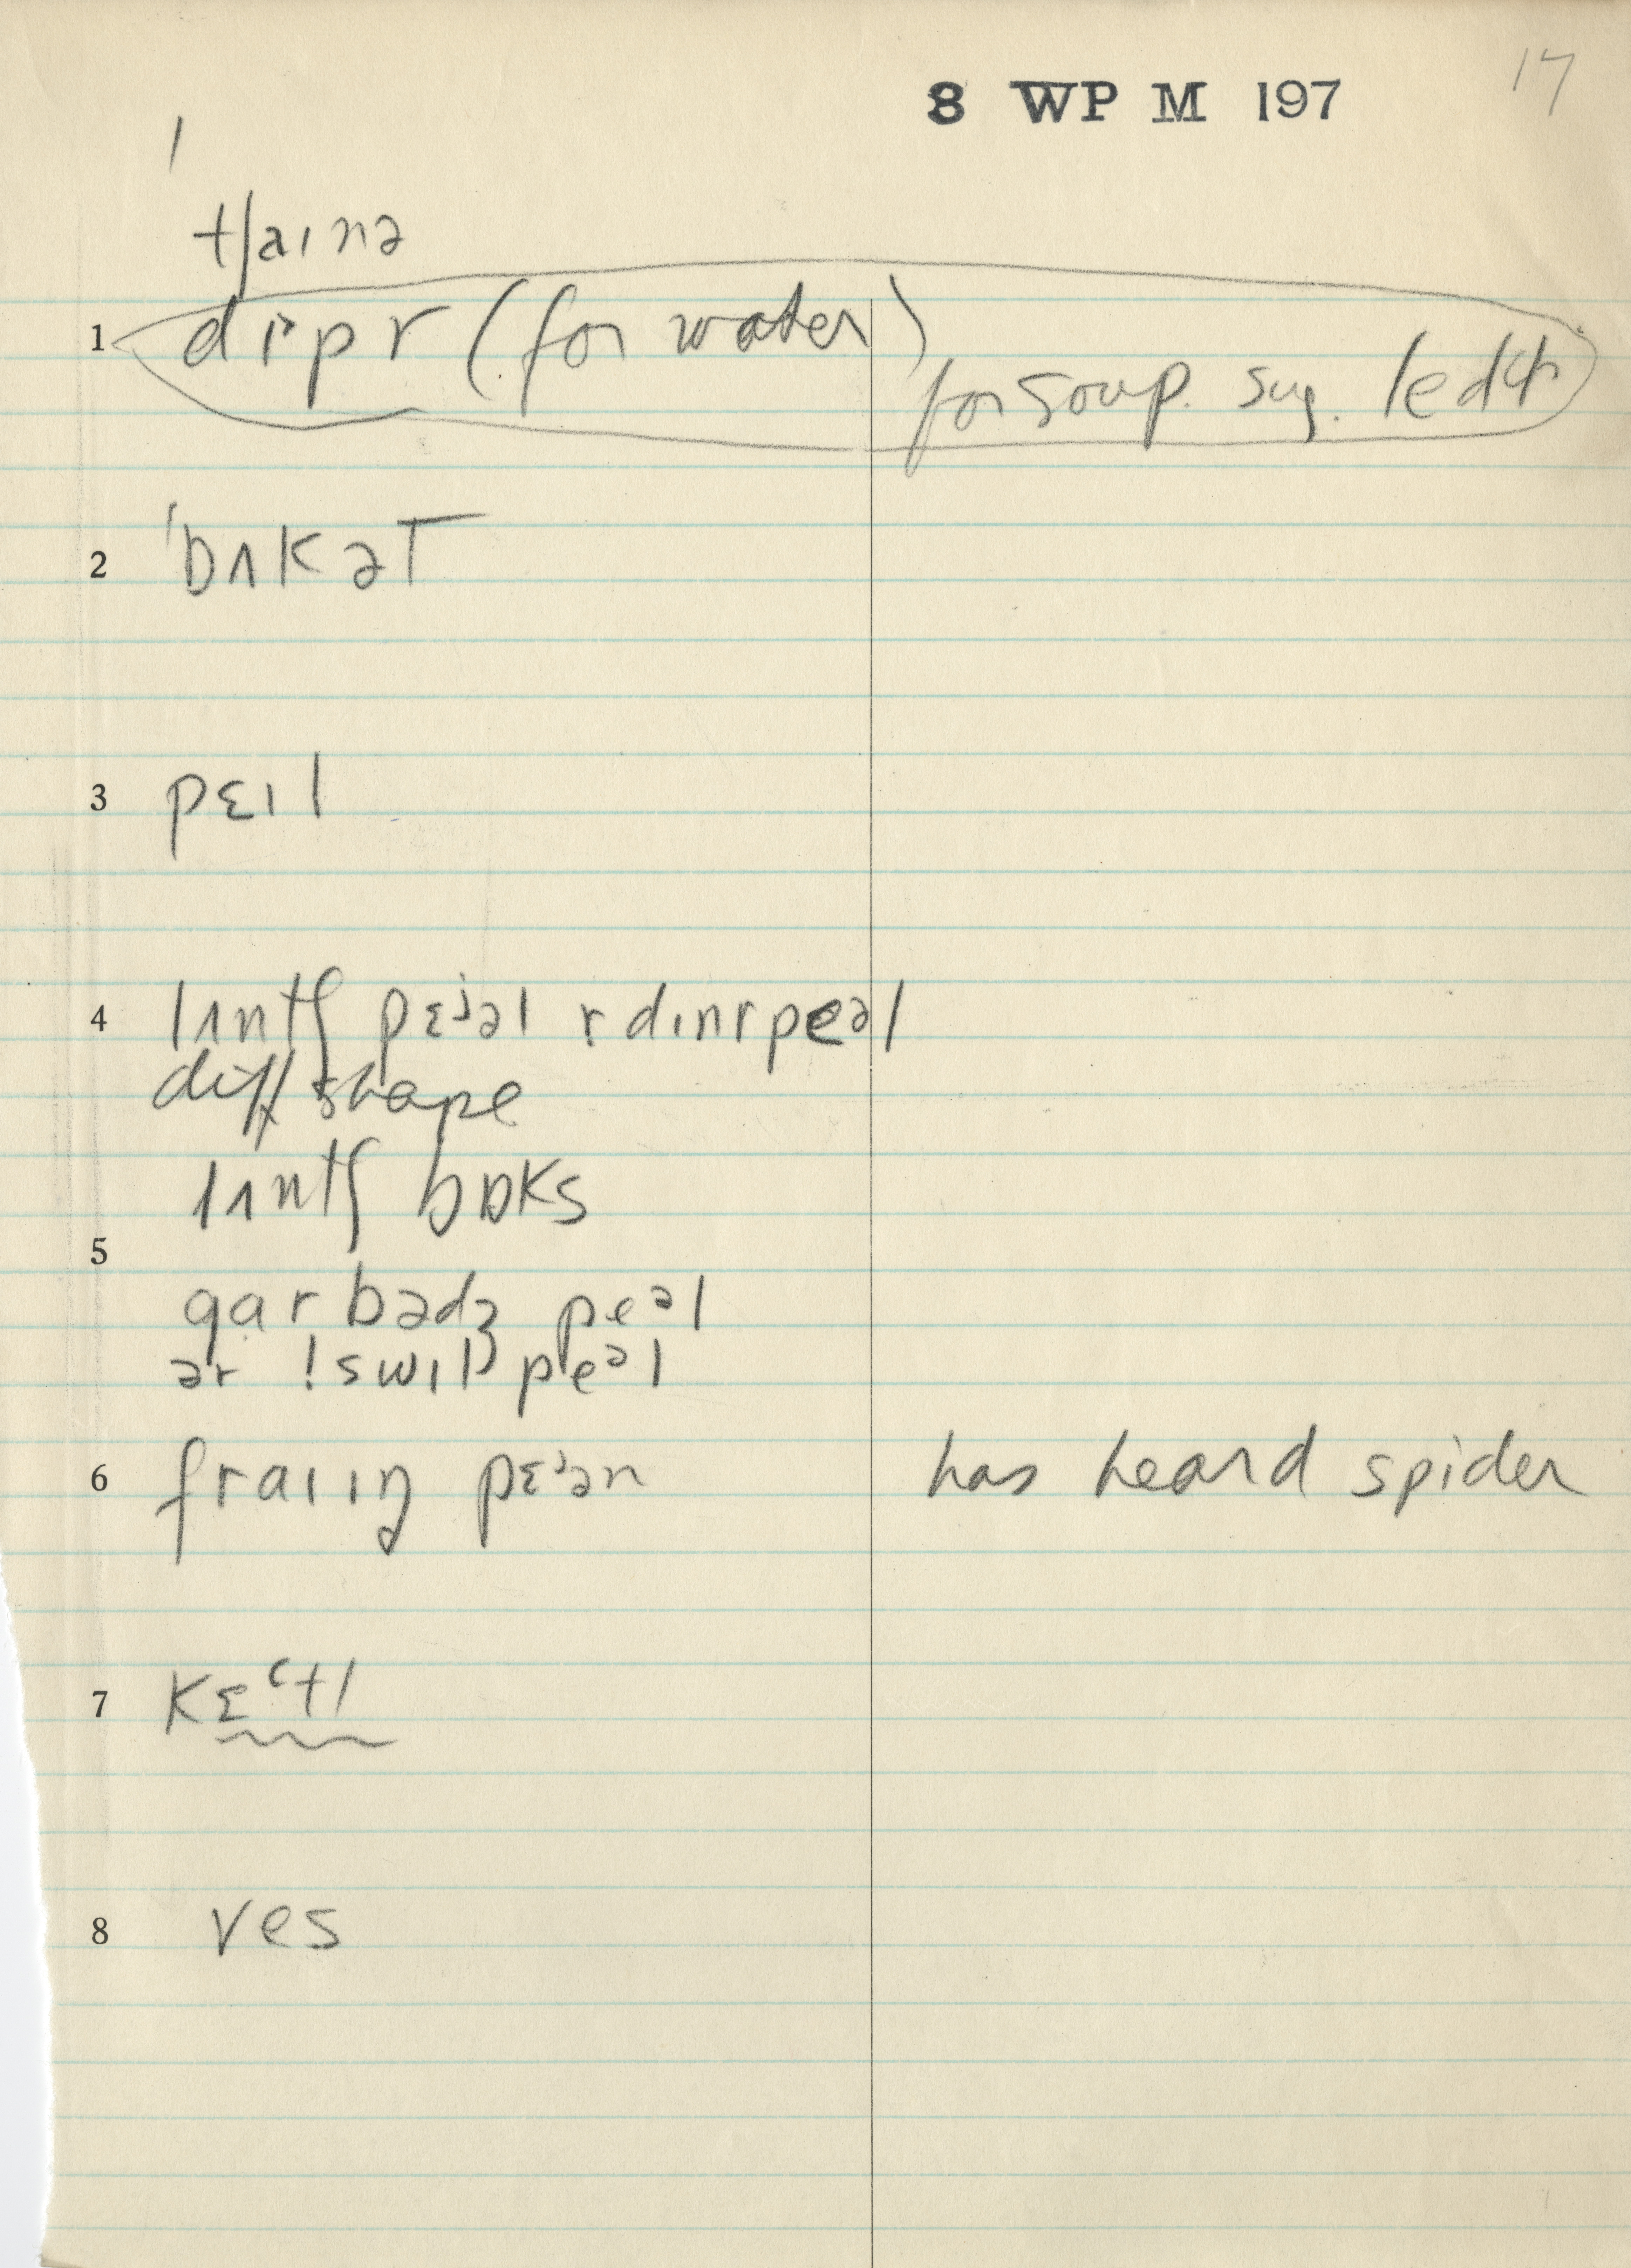 8 WP M 197
17
tʃaɪnə
1 dɪpr (for water)
for soup. sug.
2 'bʌkət
3 pɛɪl
4 lʌntʃ pɛᵊəl r dɪnrpeəl
diff shape
lʌntʃ bɒks
5
garbədʒ peəl
ər !swɪl peəl
6 fraɪɪŋ pɛᵊən has heard spider
7 Kɛᶜtl
8 ves